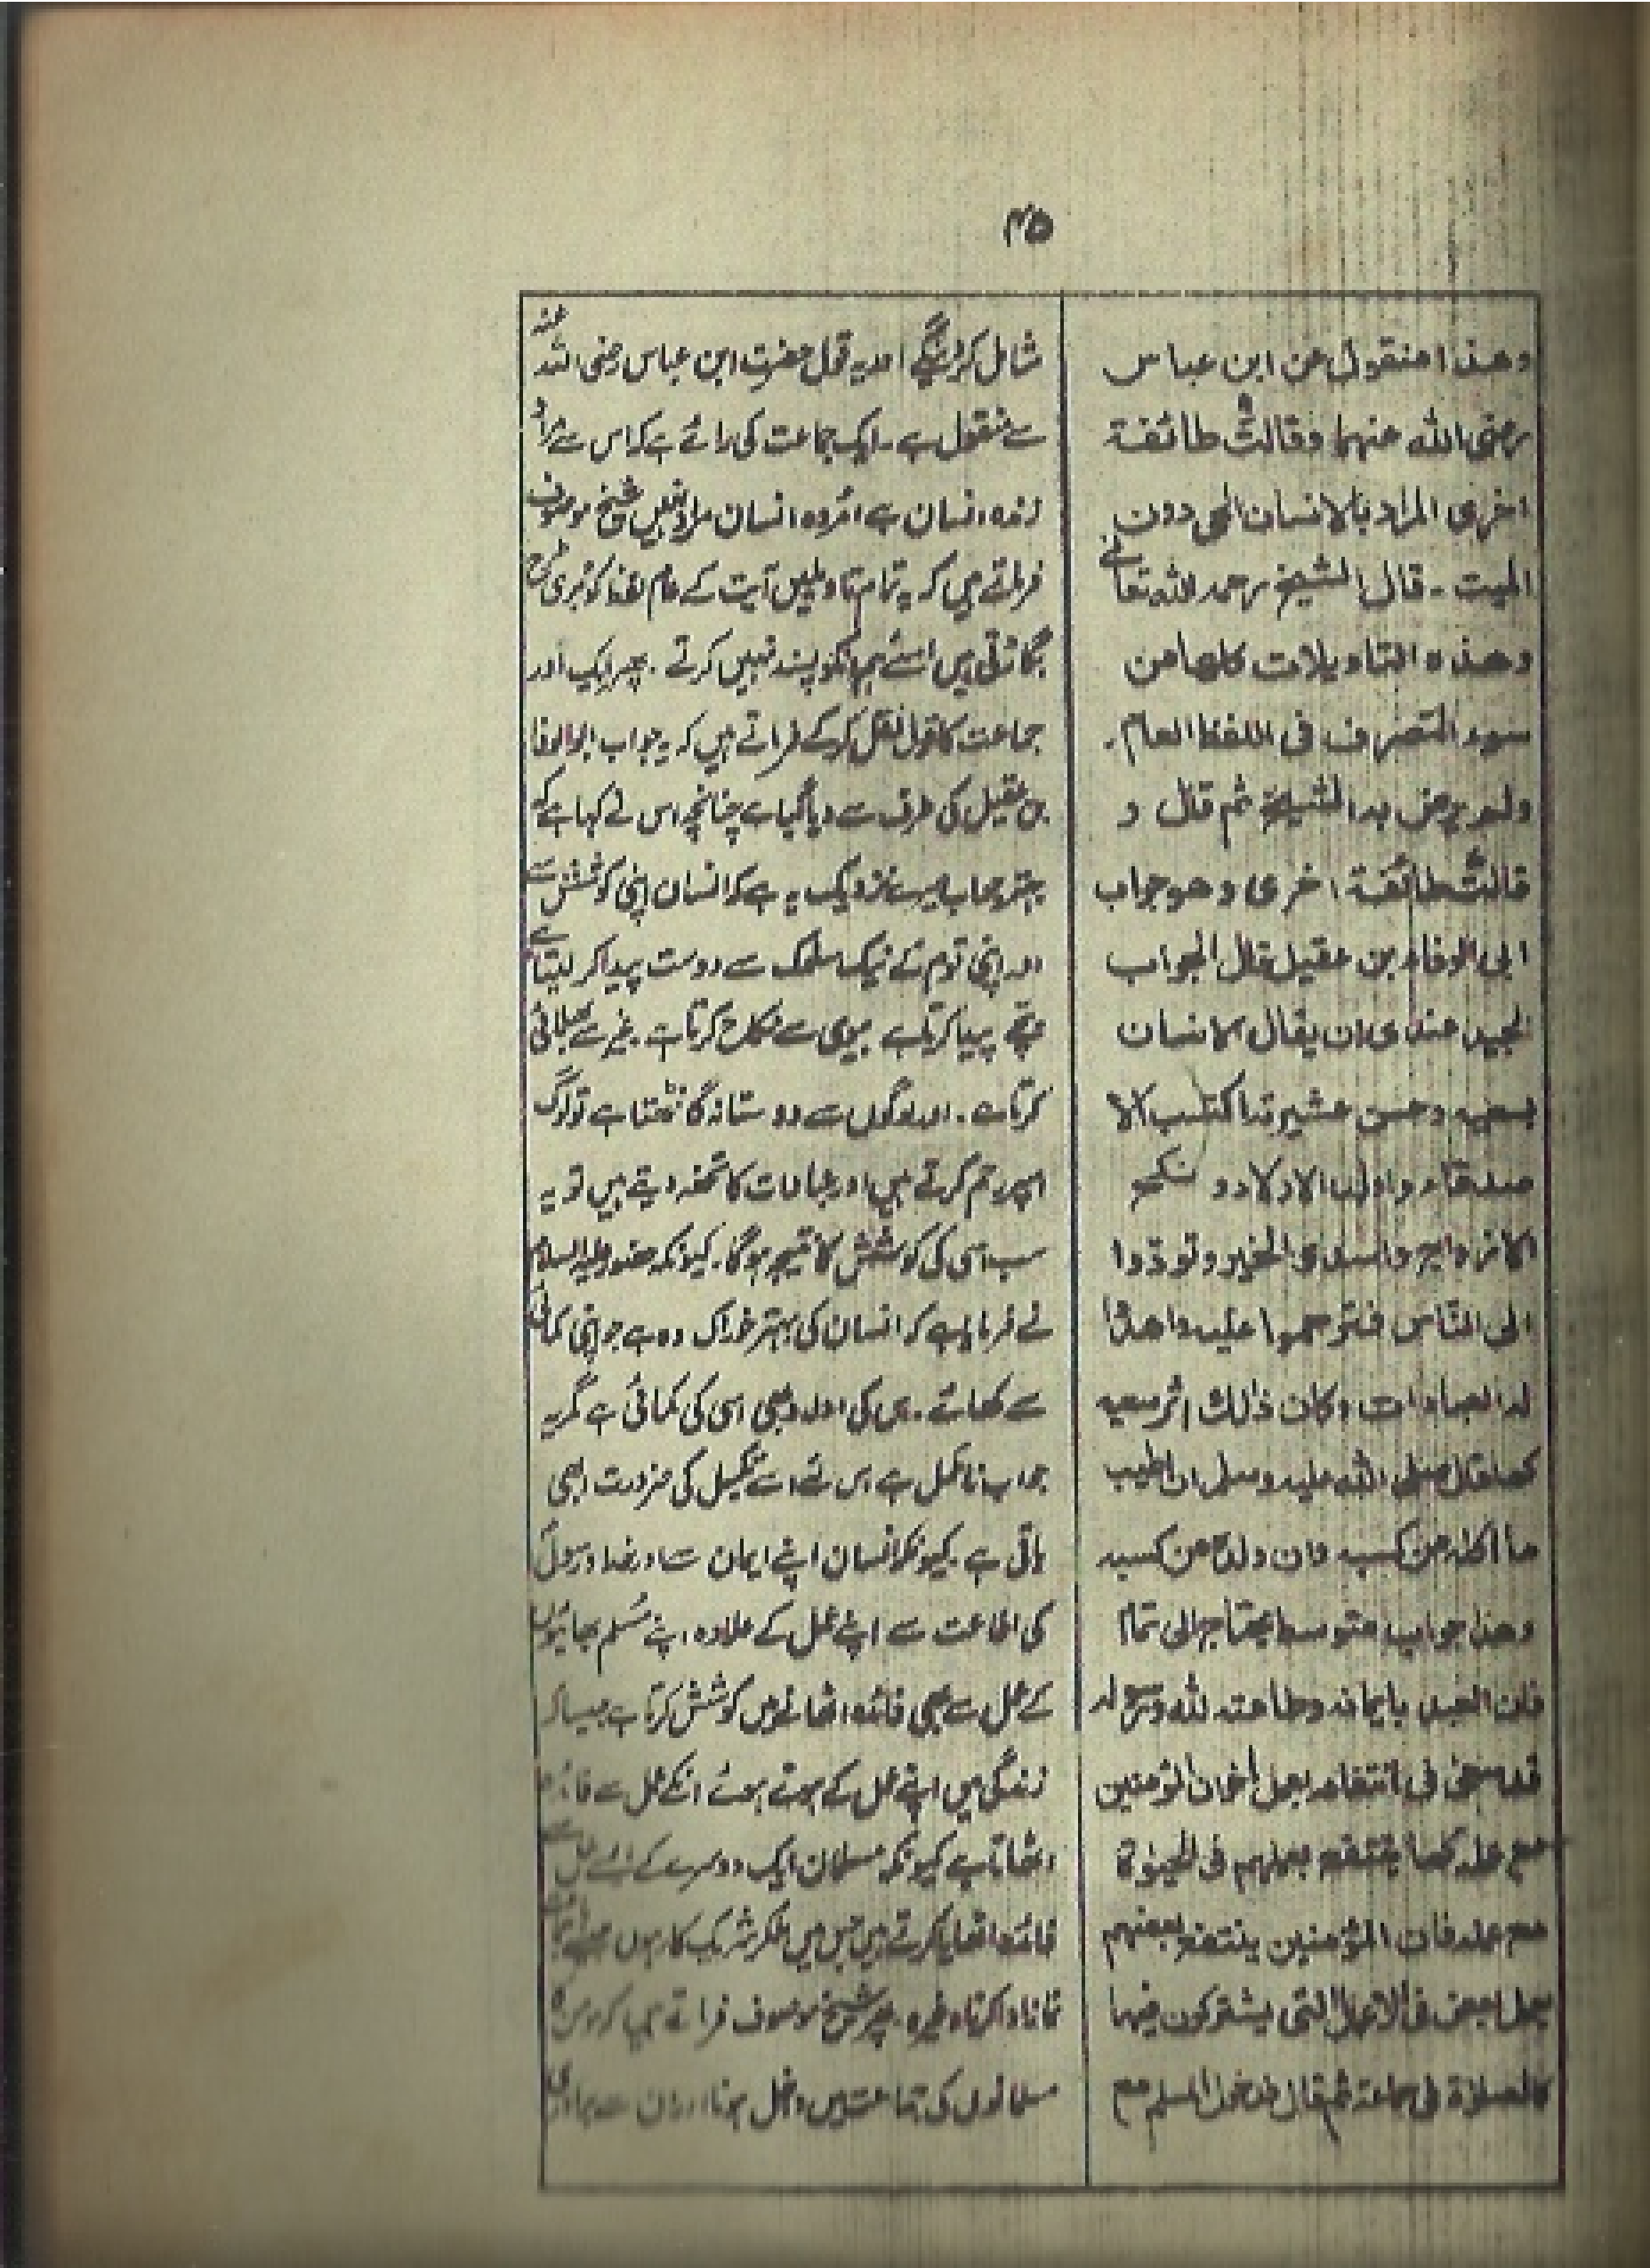 ۴۵
وهذا منقول عن ابن عباس
رضی الله عنهما وقالت طائفة
اخری المراد بالانسان الحی دون
المیت - قال الشیخ رحمه الله تعالے
وهذه التاویلات کلها من
سوء التصرف فی اللفظ العام .
ولم یرض بها الشیخ ثم قال و
قالت طائفة اخری وهو جواب
ابی الوفاء بن عقیل قال الجواب
الجید عندی ان یقال الانسان
بسعیه وحسن عشیرته اکتسب الا
صدقاء و اولد الاولاد و نکح
الازواج واسدی الخیر وتودد
الی الناس فترحموا علیه واهدوا
له العبادات وکان ذالک اثر سعیه
کما قال صلی الله علیه وسلم ان اطیب
ما اکل من کسبه وان ولده من کسبه
وهذا جواب متوسط یحتاج الی تمام
فان العبد بایمانه وطاعته لله ورسوله
قد سعی فی انتفاعه بعمل اخوانه المؤمنین
مع عمله کما ینتفع بعملهم فی الحیوة
مع عمله فان المؤمنین ینتفع بعضهم
بعمل بعض فی الاعمال التی یشترکون فیها
کالصلوة فی جماعة ثم قال فدخول المسلم مع
شامل کر لینگے اور یہ قول حضرت ابن عباس رضی اللہ عنہ
سے منقول ہے ۔ ایک جماعت کی رائے ہے کہ اس سے مراد
زندہ انسان ہے مردہ انسان مراد نہیں شیخ موصوف
فرماتے ہیں کہ یہ تمام تاویلیں آیت کے عام لفظ کو بری طرح
بگاڑتی ہیں اسلئے ہم انکو پسند نہیں کرتے . پھر ایک اور
جماعت کا قول نقل کرکے فرماتے ہیں کہ یہ جواب ابو الوفا
بن عقیل کی طرف سے دیا گیا ہے چنانچہ اس نے کہا ہے کہ
بہتر جواب میرے نزدیک یہ ہے کہ انسان اپنی کوشش سے
اور اپنی قوم کے نیک سلوک سے دوست پیدا کر لیتا ہے
بچے پیدا کرتا ہے بیوی سے نکاح کرتا ہے . غیر سے بھلائی
کرتا ہے . اور لوگوں سے دوستانہ گانٹھتا ہے تو لوگ
اسپر رحم کرتے ہیں اور عبادات کا تحفہ دیتے ہیں تو یہ
سب اسی کی کوشش کا نتیجہ ہوگا . کیونکہ حضور علیہ السلام
نے فرمایا ہے کہ انسان کی بہتر خوراک وہ ہے جو اپنی کمائی
سے کھائے . اس کی اولاد بھی اسی کی کمائی ہے مگر یہ
جواب نا مکمل ہے اس لئے اسے تکمیل کی ضرورت ابھی
باقی ہے . کیونکہ انسان اپنے ایمان سے اور خدا و رسول
کی اطاعت سے اپنے عمل کے علاوہ اپنے مسلم بھائیوں
کے عمل سے بھی فائدہ اٹھانے میں کوشش کرتا ہے جیسا کہ
زندگی میں اپنے عمل کے ہوتے ہوئے انکے عمل سے فائدہ
اٹھاتا ہے کیونکہ مسلمان ایک دوسرے کے
فائدہ اٹھایا کرتے ہیں جس میں ملکر شریک کار ہوں
نماز ادا کرنا وغیرہ . پھر شیخ موصوف فرماتے ہیں کہ
مسلمانوں کی جماعت میں داخل ہونا اور ان سے